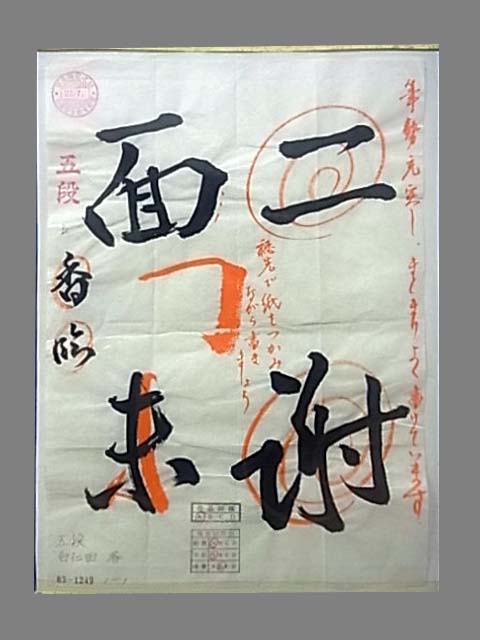 筆勢充実し、まとまりよく書けています
二謝
穂先で紙をつかみ
ながら書き
ましょう
面未
五段
香臨
五段
香
83-1249